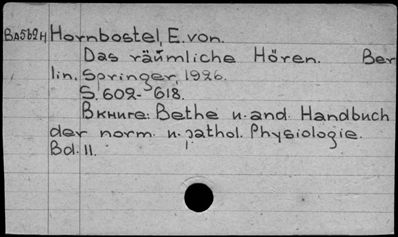 BA5624 Hornbostel, E. von.
Das räumliche Hören. Ber
lin, Springer, 1926.
S. 602-618.
Вкниге: Bethe u. and. Handbuch
der norm. u. pathol. Physiologie.
Bd. 11.